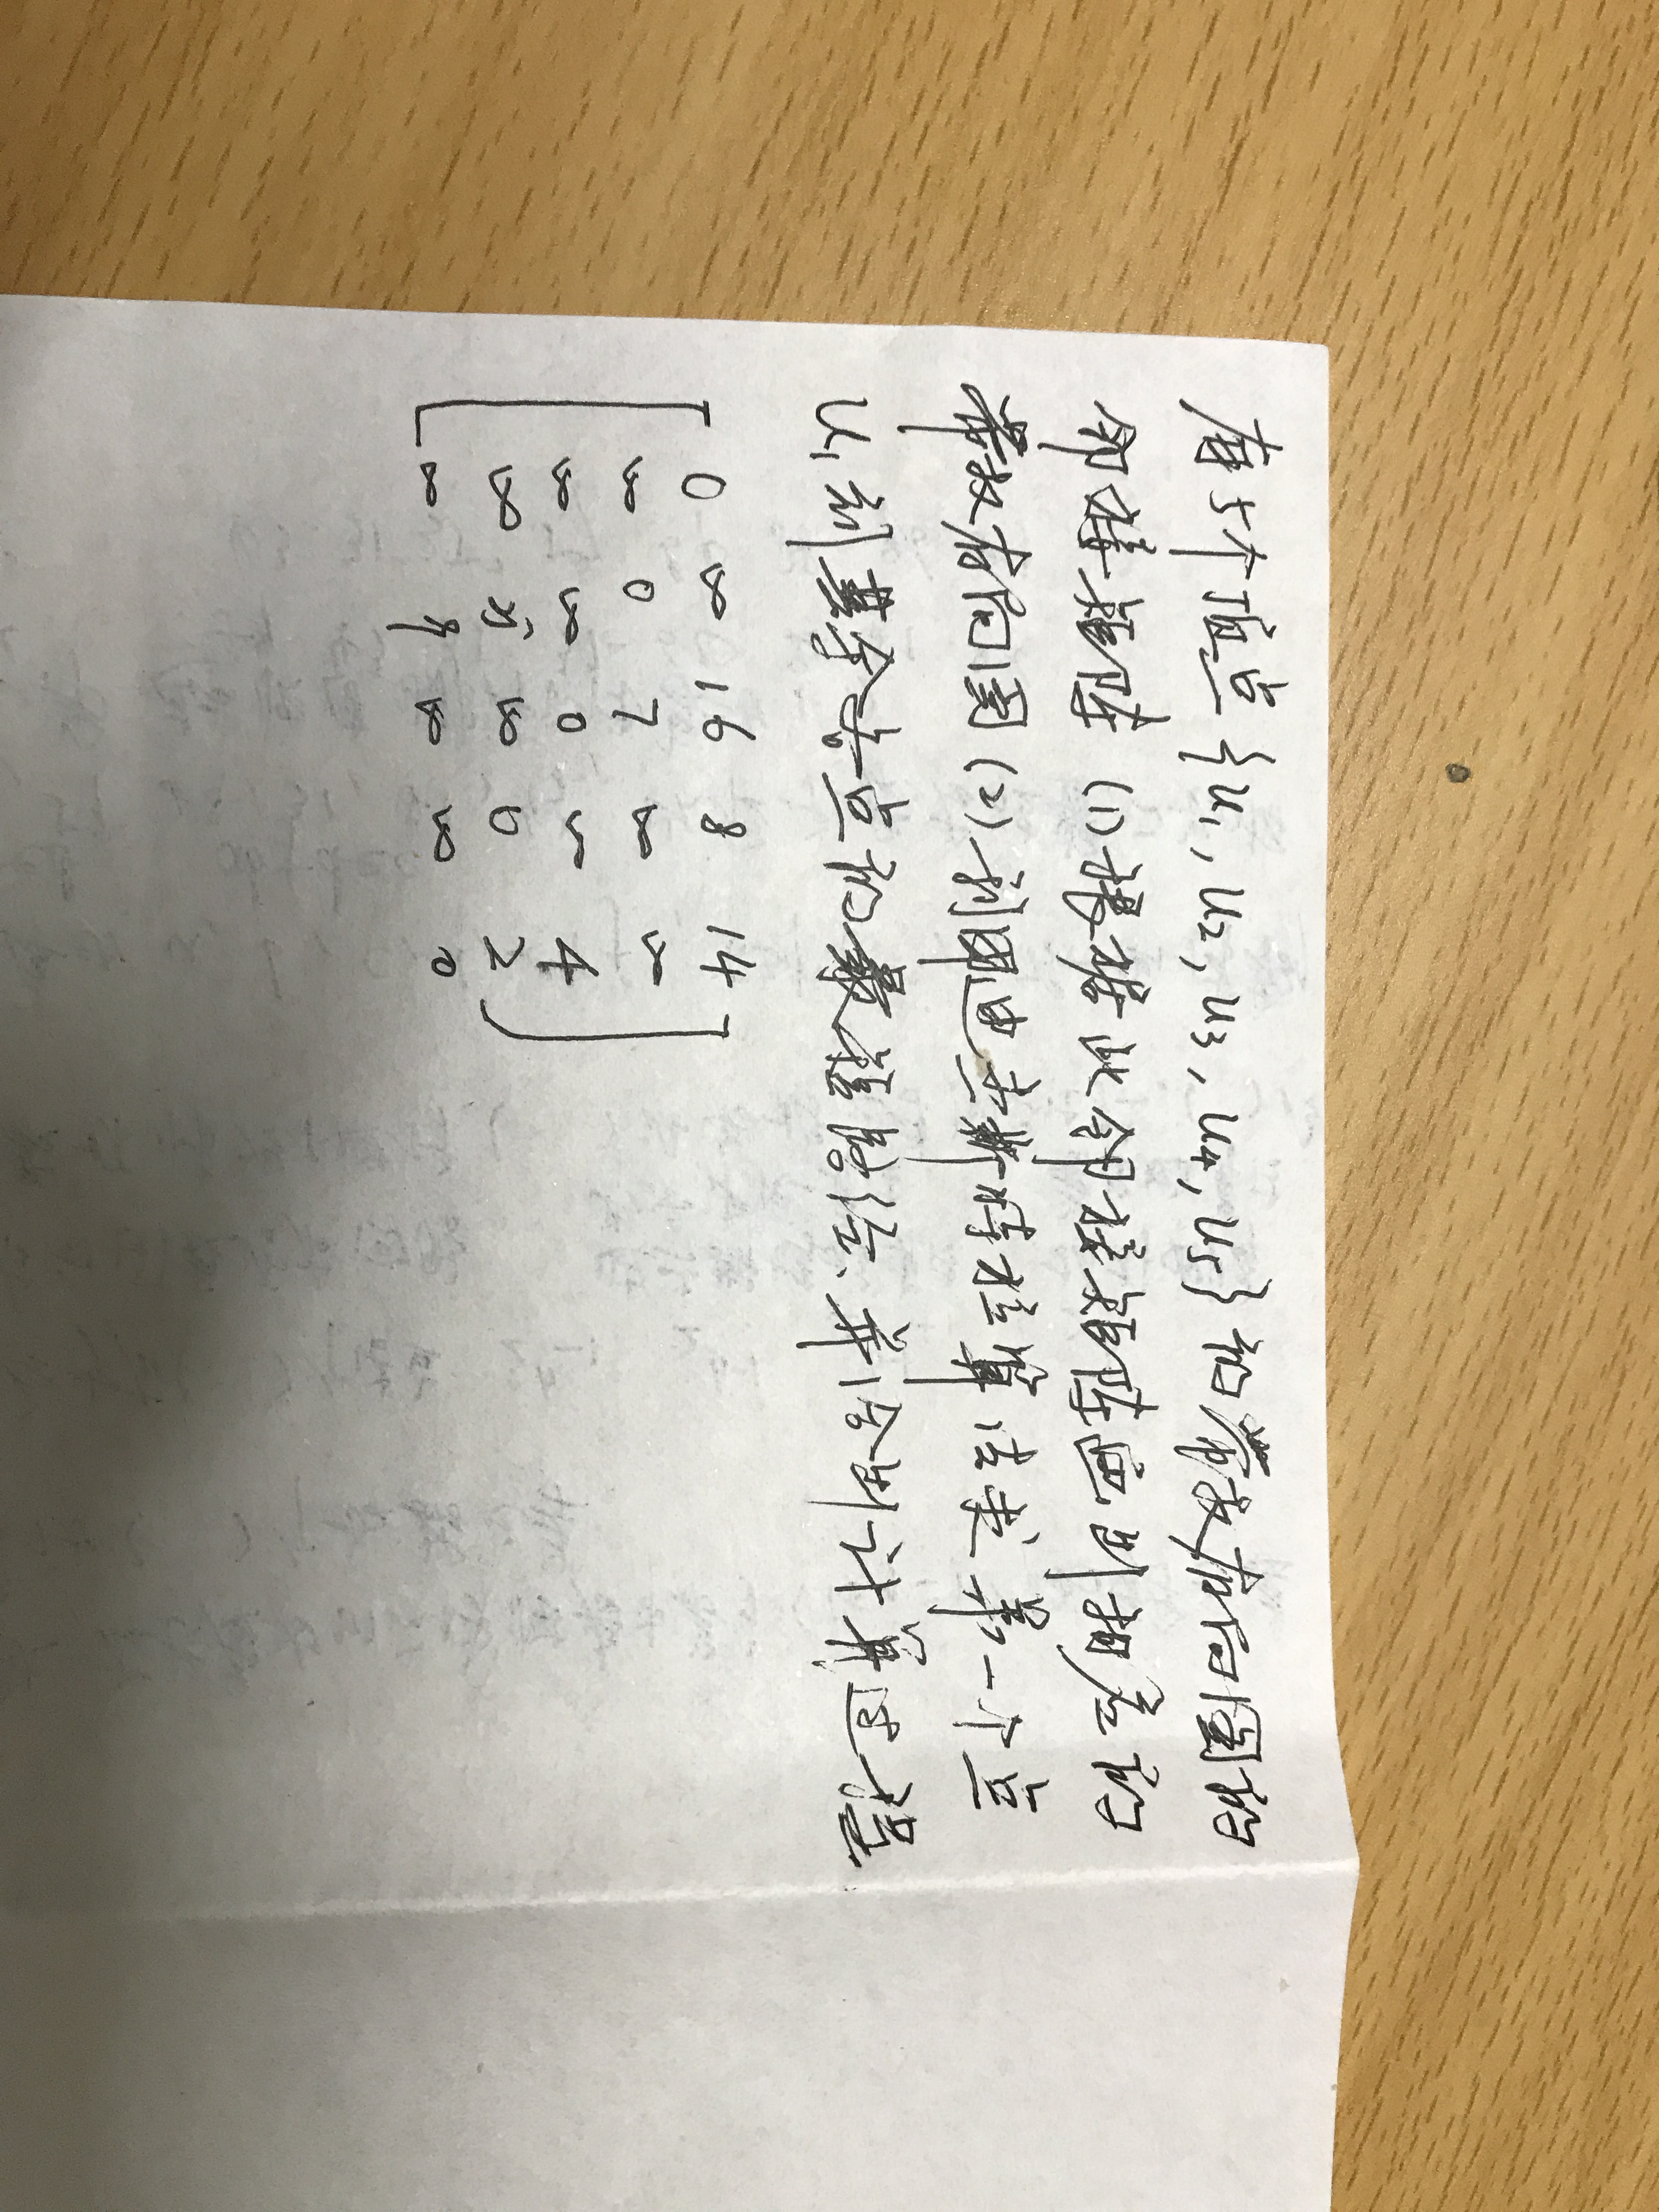 有5个顶点{u₁, u₂, u₃, u₄, u₅}的带权有向图的
邻接矩阵 (1)根据此邻接矩阵画出相应的
带权有向图 (2)利用迪杰斯特拉算法求第一个点
u₁到其余各点的最短路径,并给出计算过程.
0 ∞ 16 8 14
∞ 0 7 ∞ ∞
∞ ∞ 0 ∞ 4
∞ 5 ∞ 0 2
∞ 9 ∞ ∞ 0